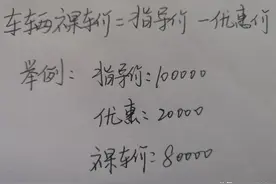 车车两裸车价=指导价-优惠价
举例：指导价：100000
优惠：20000
裸车价：80000